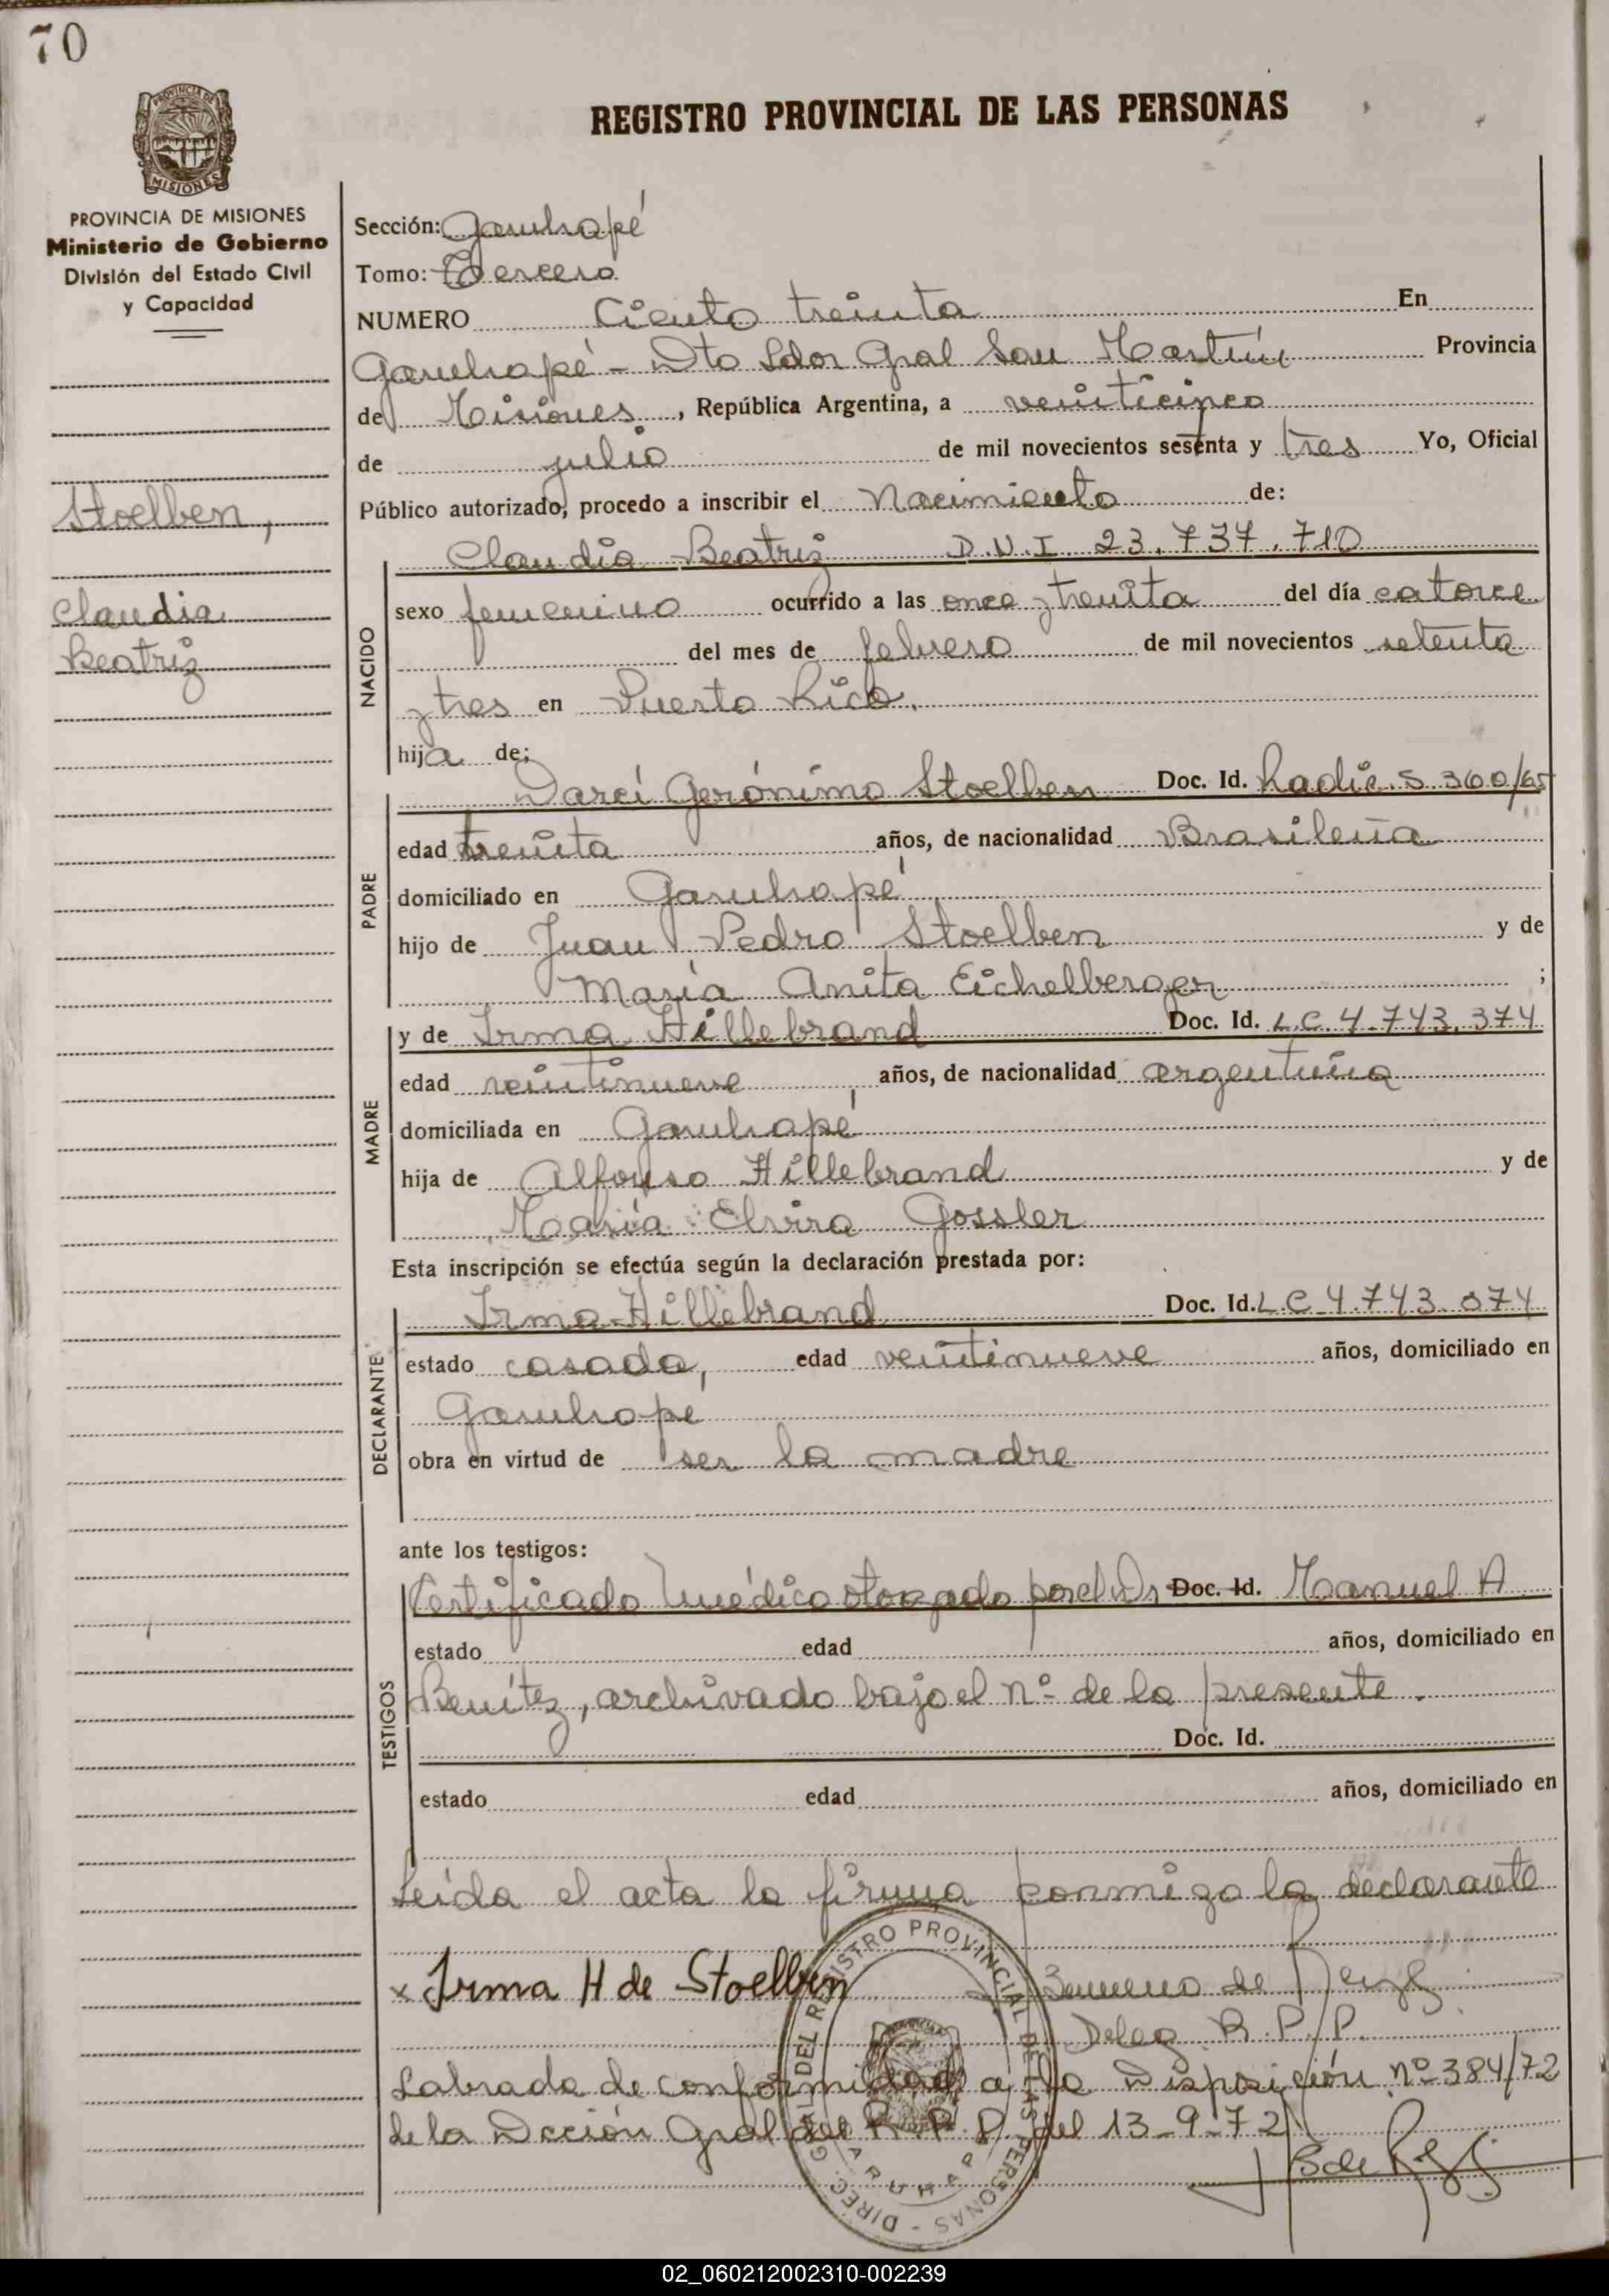 70
PROVINCIA DE MISIONES
PROVINCIA DE MISIONES
Ministerio de Gobierno
División del Estado Civil
y Capacidad
Stoelben,
Claudia
Beatriz
REGISTRO PROVINCIAL DE LAS PERSONAS
Sección: Garuhapé
Tomo: Tercero
NUMERO Ciento treinta En
Garuhapé - Dto Ldor Gral San Martín Provincia
de Misiones, República Argentina, a veinticinco
de julio de mil novecientos sesenta y tres Yo, Oficial
Público autorizado, procedo a inscribir el Nacimiento de:
Claudia Beatriz D.N.I. 23.737.710
NACIDO
sexo femenino ocurrido a las once y treinta del día catorce
del mes de febrero de mil novecientos setenta
y tres en Puerto Rico.
hija de:
PADRE
Darcí Gerónimo Stoelben Doc. Id. Radic. S 360/65
edad treinta años, de nacionalidad Brasileña
domiciliado en Garuhapé
hijo de Juan Pedro Stoelben y de
María Anita Eichelberger ;
MADRE
y de Irma Hillebrand Doc. Id. L.C. 4.743.374
edad veintinueve años, de nacionalidad argentina
domiciliada en Garuhapé
hija de Alfonso Hillebrand y de
María Elvira Gossler
Esta inscripción se efectúa según la declaración prestada por:
DECLARANTE
Irma Hillebrand Doc. Id. L.C 4.743.074
estado casada, edad veintinueve años, domiciliado en
Garuhape
obra en virtud de ser la madre
ante los testigos:
TESTIGOS
Certificado médico otorgado por el Dr Doc. Id. Manuel A
estado edad años, domiciliado en
Benítez, archivado bajo el nº de la presente.
Doc. Id.
estado edad años, domiciliado en
Leída el acta la firma conmigo la declarante
x Irma H de Stoelben
de
Deleg R.P.P.
Labrada de conformidad a la Disposición nº 384/72
de la Dcción Gral del R.P.P. del 13-9-72
DIREC. GRAL DEL REGISTRO PROVINCIAL DE LAS PERSONAS
GARUHAPE
02_060212002310-002239